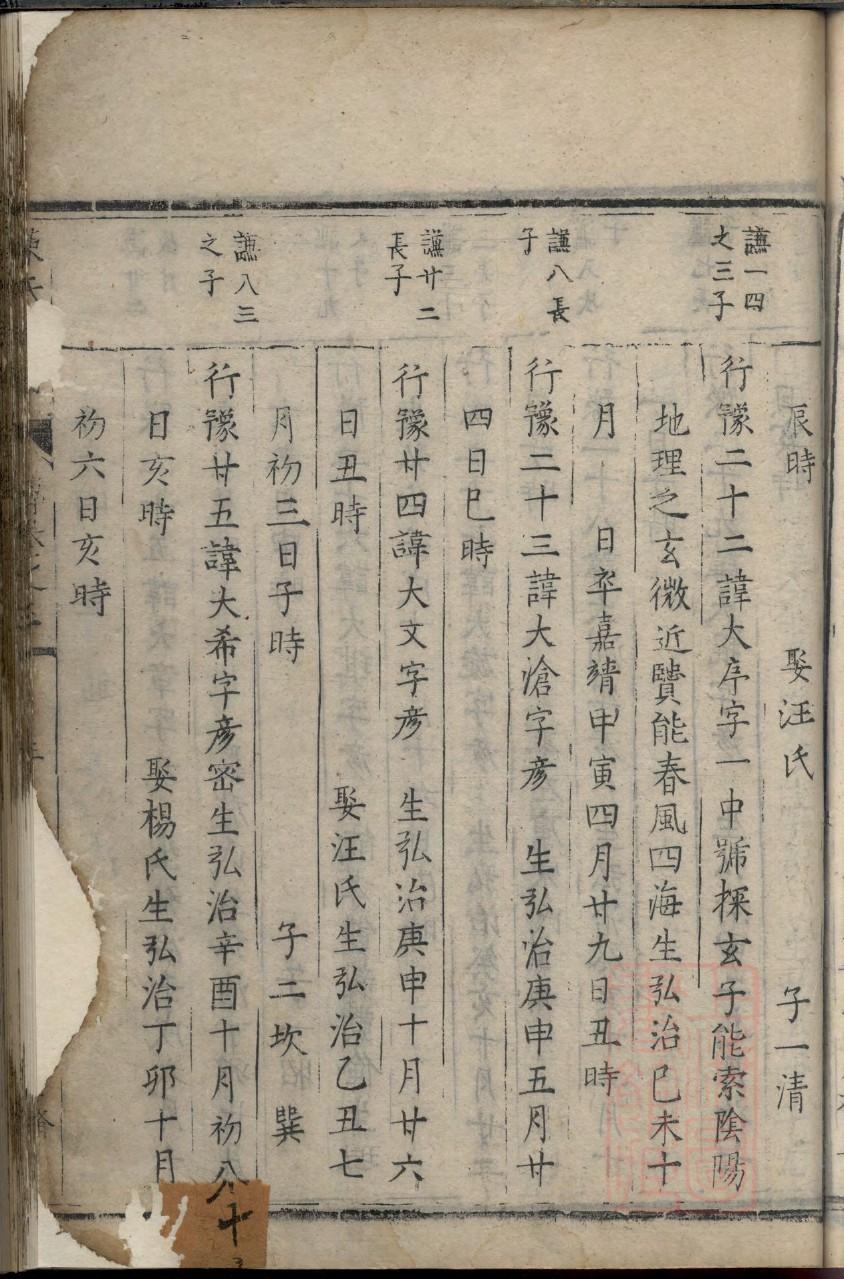 辰時 娶汪氏 子一清
謙一四
之三子
行豫二十二諱大序字一中號探玄子能索陰陽
地理之玄微近贒能春風四海生弘治己未十
月 日卒嘉靖甲寅四月廿九日丑時
謙八長
子
行豫二十三諱大滄字彦 生弘治庚申五月廿
四日巳時
謙廿二
長子
行豫廿四諱大文字彦 生弘治庚申十月廿六
日丑時 娶汪氏生弘治乙丑七
月初三日子時 子二坎 巽
謙八三
之子
行豫廿五諱大希字彦密生弘治辛酉十月初八
日亥時 娶楊氏生弘治丁卯十月
初六日亥時
十